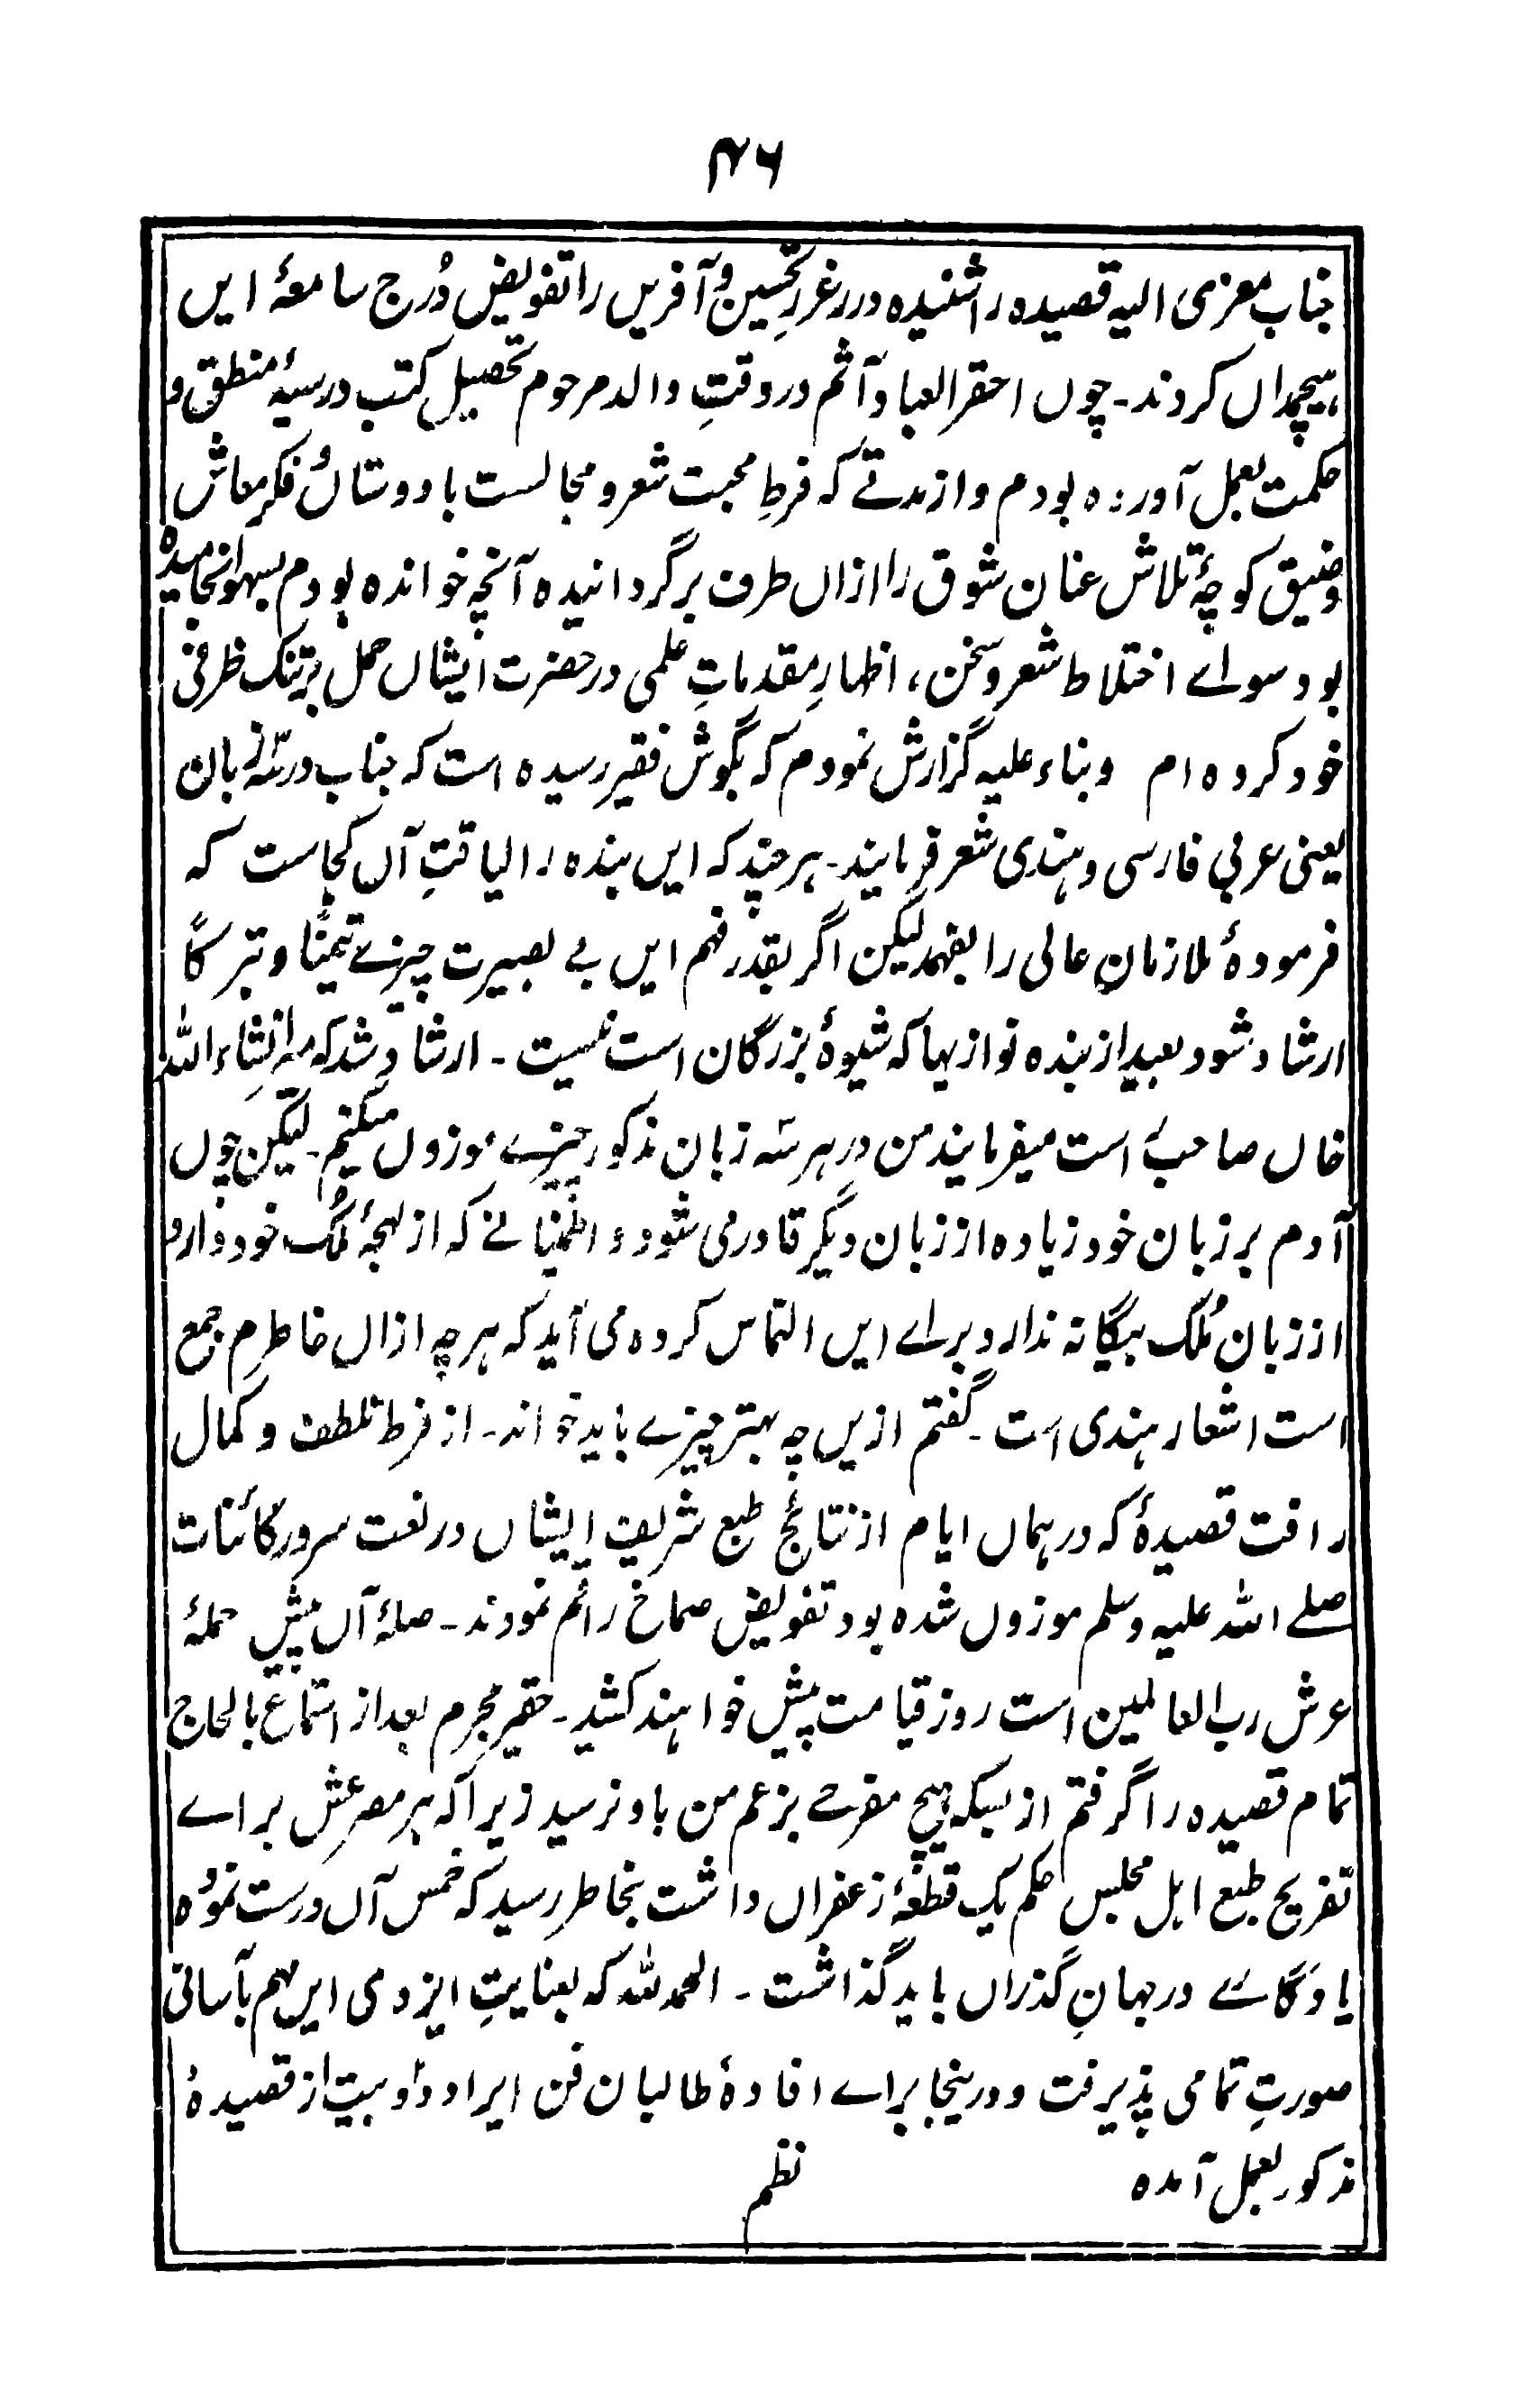 ۴۶
جناب معزی الیہ قصیدہ را شنیدہ درر غررِ تحسین و آفریں را تفویض دُرج سامعۂ ایں
ہیچمداں کردند۔ چوں احقر العباد آثم در وقتِ والد مرحوم تحصیل کتب درسیۂ منطق و
حکمت بعمل آوردہ بودم و از مدتے کہ فرطِ محبت شعر و مجالست با دوستاں و فکرِ معاش
و ضیق کوچۂ تلاش عنان شوق را ازاں طرف برگردانیدہ آنچہ خواندہ بودم بسہو انجامیدہ
بود سواے اختلاط شعر و سخن، اظہارِ مقدماتِ علمی در حضرت ایشاں حمل بر تنک ظرفی
خود کردہ ام و بناء علیہ گزارش نمودم کہ بگوش فقیر رسیدہ است کہ جناب در سہ زبان
یعنی عربی فارسی و ہندی شعر فرمایند۔ ہر چند کہ ایں بندہ را لیاقتِ آں کجاست کہ
فرمودۂ ملازمانِ عالی را بفہمد لیکن اگر بقدر فہم ایں بے بصیرت چیزے تیمنًا و تبرکًا
ارشاد شود بعید از بندہ نوازیہا کہ شیوۂ بزرگان است نیست۔ ارشاد شد کہ میر انشاء اللہ
خاں صاحب است میفرمایند من در ہر سہ زبان مذکور چیزے موزوں میکنم۔ لیکن چوں
آدم بر زبان خود زیادہ از زبان دیگر قادر می شود و اطمینانے کہ از لہجۂ مُلک خود دارد
از زبان مُلک بیگانہ ندارد براے ایں التماس کردہ می آید کہ ہر چہ ازاں خاطرم جمع
است اشعار ہندی است۔ گفتم ازیں چہ بہتر چیزے باید خواند۔ از فرط تلطف و کمال
رافت قصیدۂ کہ در ہماں ایام از نتائج طبع شریف ایشاں در نعت سرور کائنات
صلے اللہ علیہ وسلم موزوں شدہ بود تفویض صماخ راقم نمودند۔ صلۂ آں پیش حملۂ
عرش رب العالمین است روز قیامت پیش خواہند کشید۔ حقیر مجرم بعد از استماع بالحاج
تمام قصیدہ را گرفتم از بسکہ ہیچ مفرحے بزعم من باو نرسید زیراکہ ہر مصرعش براے
تفریح طبع اہل مجلس حکم یک قطعۂ زعفراں داشت بخاطر رسید کہ خمس آں درست نمودہ
یادگارے در جہانِ گذراں باید گذاشت۔ الحمد للہ کہ بعنایتِ ایزدی ایں مہم بآسانی
صورتِ تمامی پذیرفت و درینجا براے افادۂ طالبان فن ایراد دو بیت از قصیدۂ
مذکور بعمل آمدہ نظم